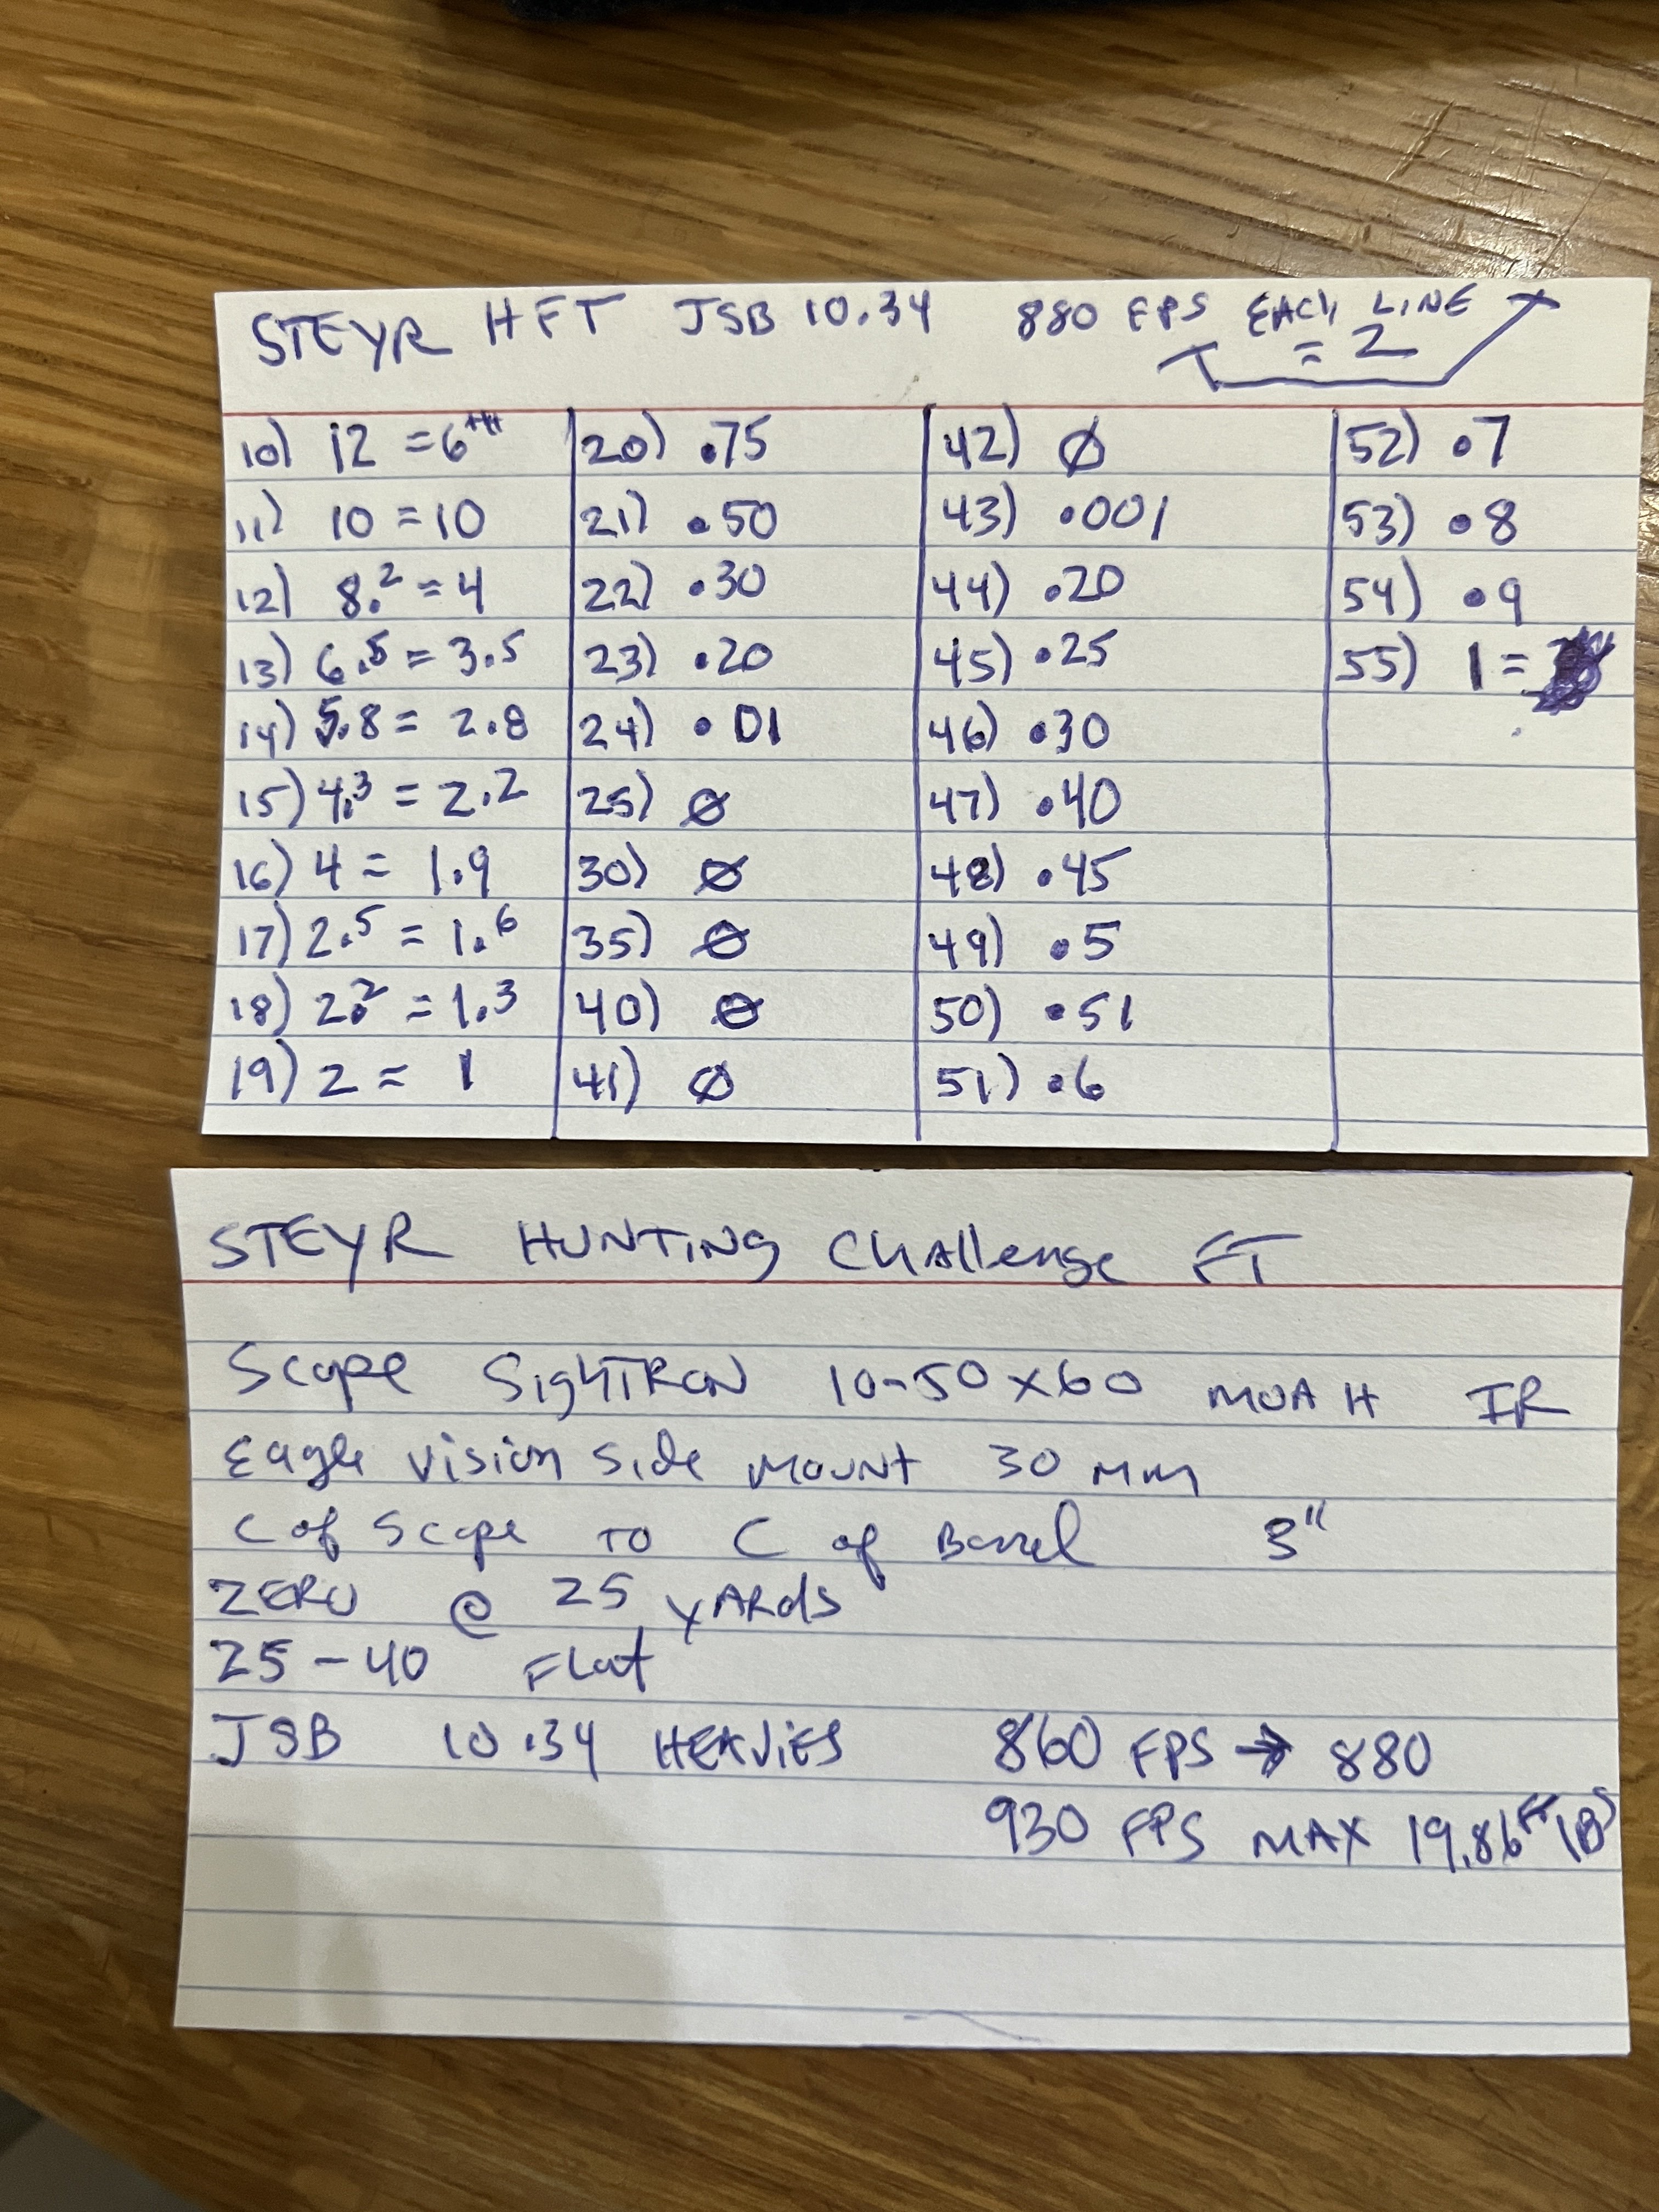 STEYR HFT JSB 10.34 880 FPS EACH LINE
= 2
10) 12 = 6
11) 10 = 10
12) 8.2 = 4
13) 6.5 = 3.5
14) 5.8 = 2.8
15) 4.3 = 2.2
16) 4 = 1.9
17) 2.5 = 1.6
18) 2.2 = 1.3
19) 2 = 1
20) .75
21) .50
22) .30
23) .20
24) .01
25) Ø
30) Ø
35) Ø
40) Ø
41) Ø
42) Ø
43) .001
44) .20
45) .25
46) .30
47) .40
48) .45
49) .5
50) .51
51) .6
52) .7
53) .8
54) .9
55) 1 =
STEYR HUNTING Challenge FT
Scope SigHTRON 10-50x60 MOA H IR
Eagle Vision Side Mount 30 MM
C of Scope TO C of Barrel 3"
ZERO @ 25 YARds
25 - 40 FLat
JSB 10.34 HEAVIES 860 FPS → 880
930 FPS MAX 19.86 FT lBS